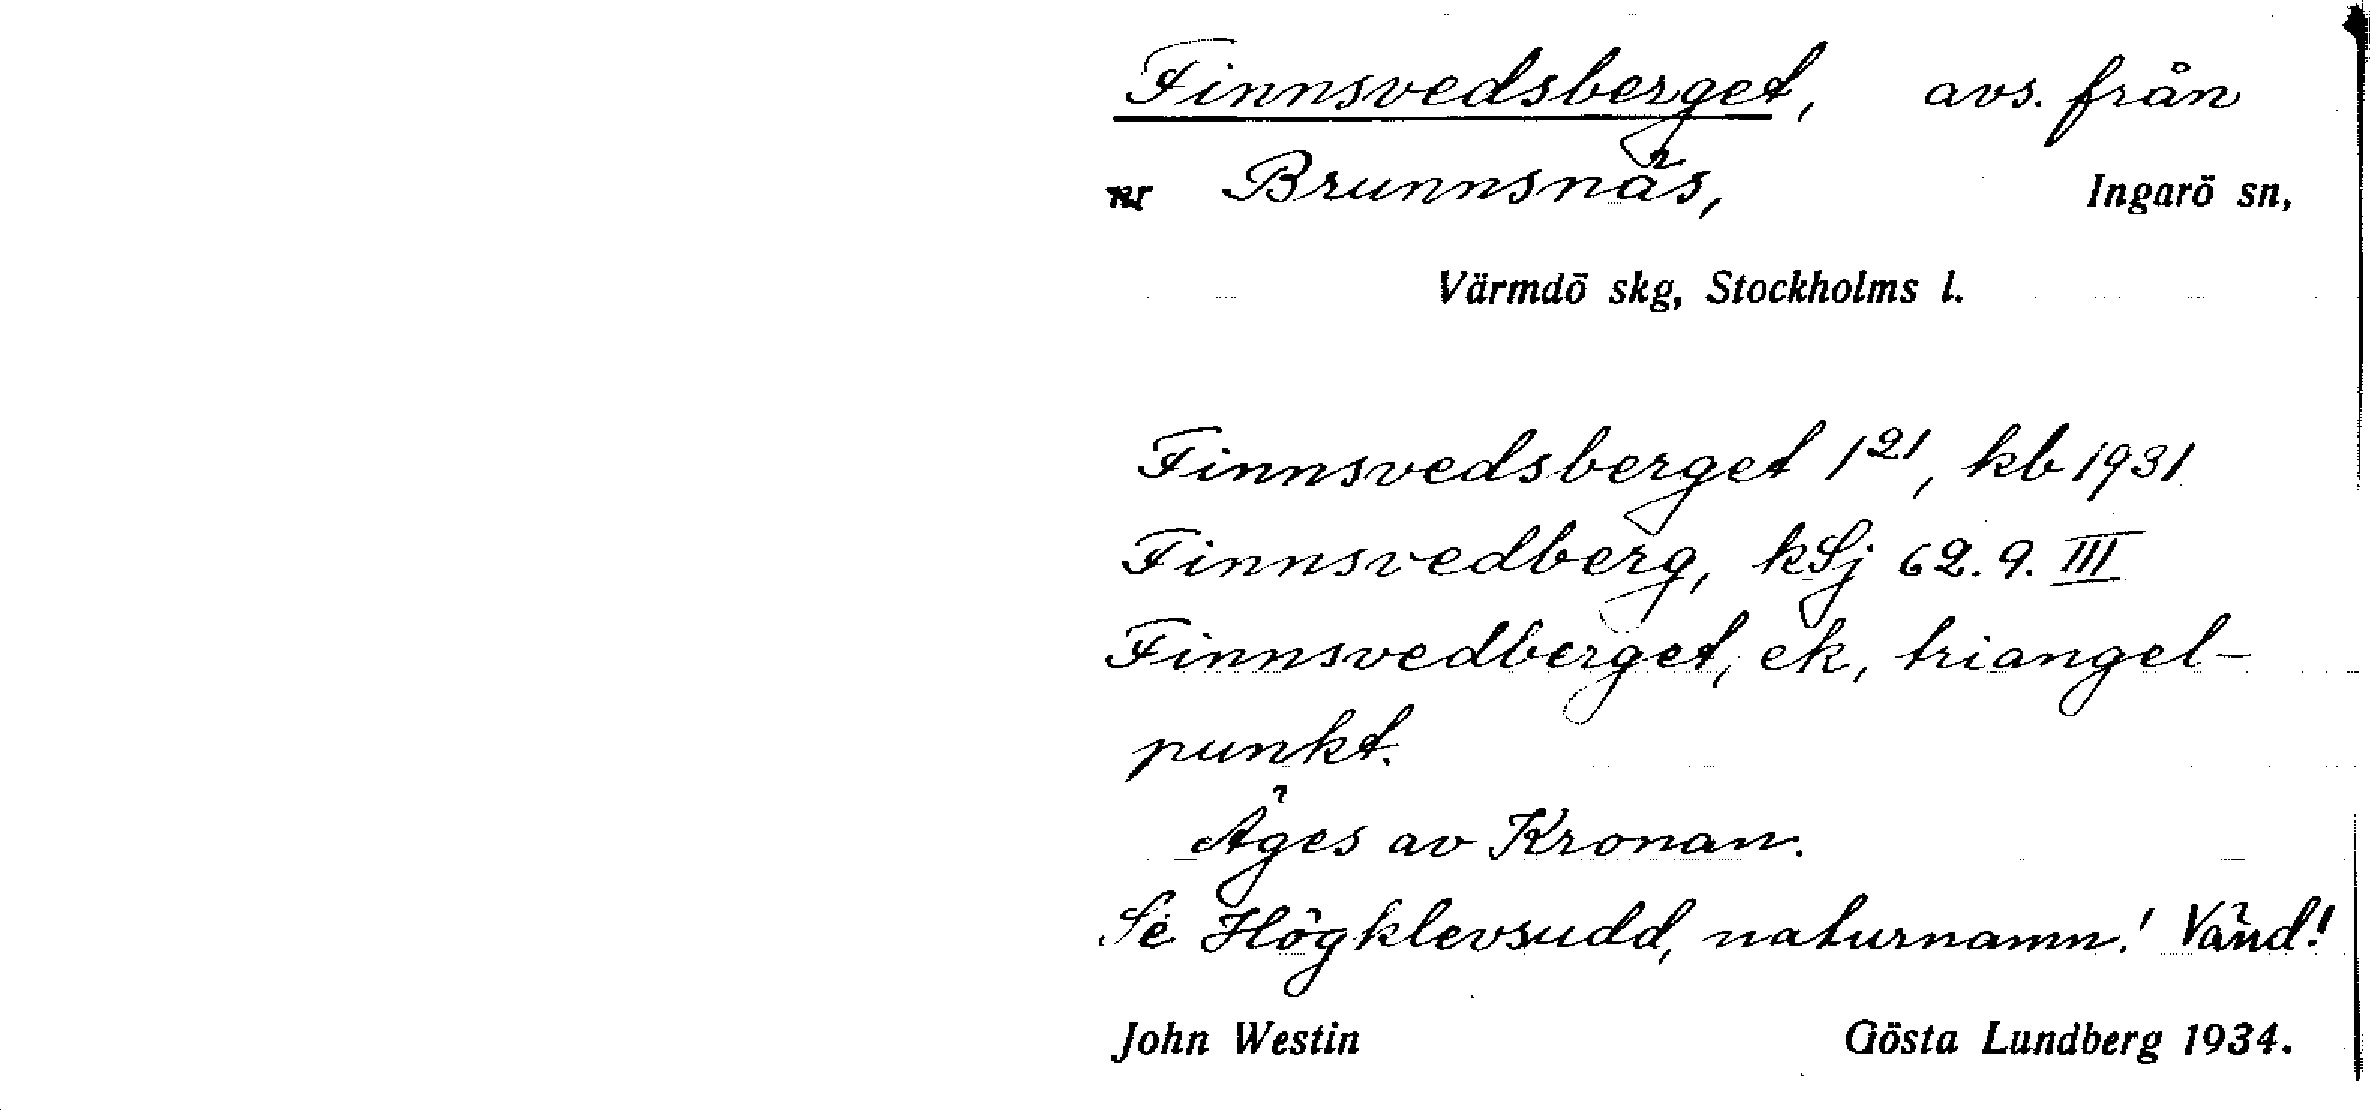 Finnsvedsberget, avs. från
nr Brunnsnäs, Ingarö sn,
Värmdö skg, Stockholms l.
Finnsvedsberget 1²¹, kb 1931
Finnsvedberg, kSj 62.9. III
Finnsvedberget, ek, triangel-
punkt.
Äges av Kronan.
Se Högklevsudd, naturnamn! Vänd!
John Westin Gösta Lundberg 1934.